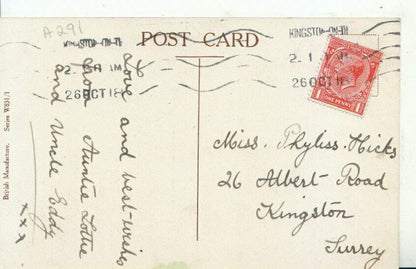 A291
POST CARD
KINGSTON-ON-TH
2. 1 AM
26 OCT 18
KINGSTON-ON-TH
2. 1 AM
26 OCT 18
ONE PENNY
1 1
Love and best-wishes
from Auntie Lottie
and Uncle Eddy
x x x
Miss. Phyliss. Hicks
26 Albert Road
Kingston
Surrey
British Manufacture. Series W831/1